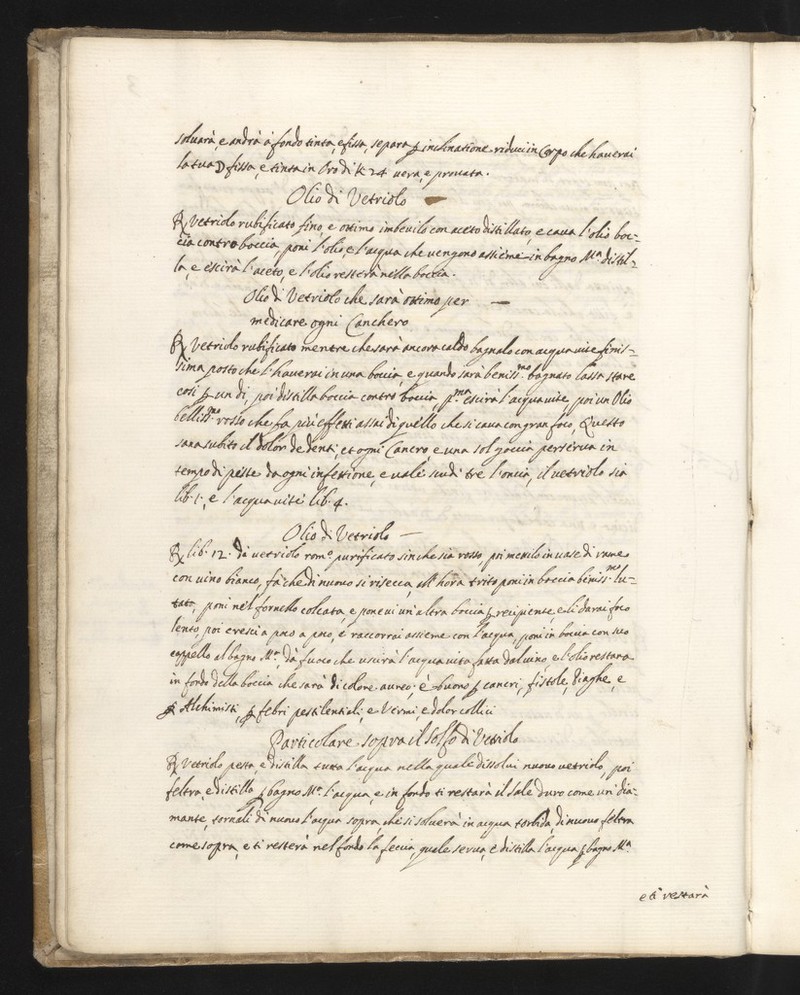 soluarà, e andrà à fondo tinta, e fissa, separa ꝑ inclinatione riduci in Corpo che hauerai
la tua ☽ fissa, e tinta in Oro di K. 24 uera, e prouata.
Olio di Vetriolo
℞ Vetriolo rubificato fino, e ottimo imbeuilo con aceto distillato, e caua l'olio boc=
cia contro boccia, poni l'olio, e l'acqua che vengono assieme in bagno Mᵃ distil=
la, e escirà l'aceto, e l'olio resterà nella boccia.
Olio di Vetriolo che sarà ottimo per
medicare ogni Canchero
℞ Vetriolo rubificato mentre che sarà ancora caldo bagnalo con acqua uite finis=
sima posto che l'hauerai in una boccia, e quando sarà beniss.ᵐᵒ bagnato lassa stare
così ꝑ un dì, poi distilla boccia contro boccia, p.ᵐᵃ escirà l'acqua uite, poi un Olio
belliss.ᵐᵒ rosso che fa più effetti assai di quello che si caua con gran foco, Questo
sana subito il dolor de denti, et ogni Cancro, e una sol goccia perserua in
tempo di peste da ogni infettione, e uale scudi tre l'oncia, il uetriolo sia
lib. 1, e l'acqua uite lib. 4.
Olio di Vetriolo
℞ lib. 12. di uetriolo rom.º purificato sin che sia rosso, poi metilo in uase di rame
con uino bianco, fà che di nuouo si risecca, all'hora trito poni in boccia beniss.ᵐᵒ lu=
tata, poni nel fornello colcata, e poneui un'altra boccia ꝑ recipiente, e li darai foco
lento, poi cresci a poco a poco, e raccorrai assieme con l'acqua, poni in boccia con suo
cappello al bagno Mᵃ, dà fuoco che uscirà l'acqua uita fatta dal uino, e l'olio restara
in fondo della boccia che sarà di colore aureo; è buono ꝑ cancri, fistole, piaghe, e
ꝑ Alchimisti, ꝑ febri pestilentiali, e Vermi, e dolor collici
Particolare sopra il solfo di Vetriolo
℞ Vetriolo pesta, e distilla tutta l'acqua nella quale dissolui nuouo uetriolo, poi
feltra, e distilla ꝑ bagno Mᵃ l'acqua, e in fondo ti restarà il Sale duro come un dia=
mante, tornali di nuouo l'acqua sopra, che si soluerà in acqua torbida, di nuouo feltra
come sopra, e ti resterà nel fondo la feccia, quale serua, e distilla l'acqua ꝑ bagno Mᵃ
e ti restarà